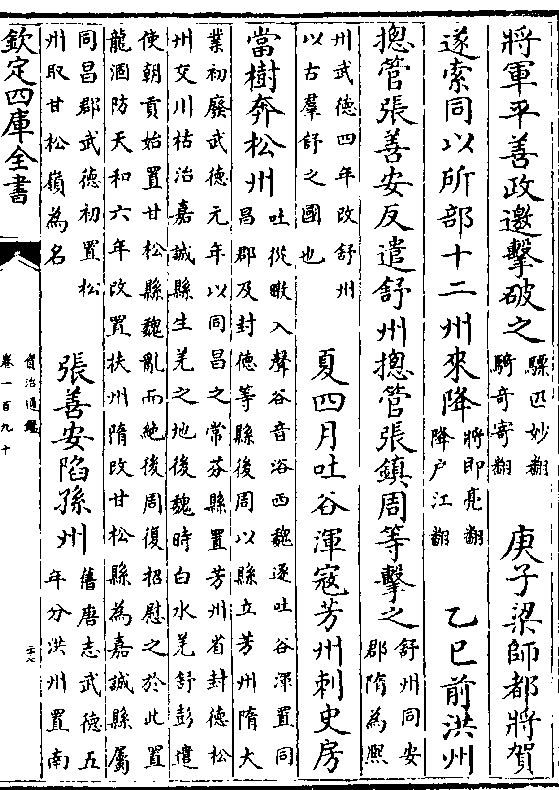 將軍平善政邀擊破之驃匹妙翻騎奇寄翻 庚子梁師都將賀
遂索同以所部十二州來降將即亮翻降户江翻 乙巳前洪州
揔管張善安反遣舒州揔管張鎮周等擊之舒州同安郡隋為熈
州武德四年改舒州以古羣舒之國也 夏四月吐谷渾寇芳州刺史房
當樹奔松州吐從暾入聲谷音浴西魏逐吐谷渾置同昌郡及封德等縣後周以縣立芳州隋大
業初廢武德元年以同昌之常芬縣置芳州省封德松州交川枯治嘉誠縣生羌之地後魏時白水羌舒彭遣
使朝貢始置甘松縣魏亂而絶後周復招慰之於此置龍涸防天和六年改置扶州隋改甘松縣為嘉誠縣屬
同昌郡武德初置松州取甘松嶺為名 張善安陷孫州舊唐志武德五年分洪州置南
欽定四庫全書
資治通鑑
卷一百九十